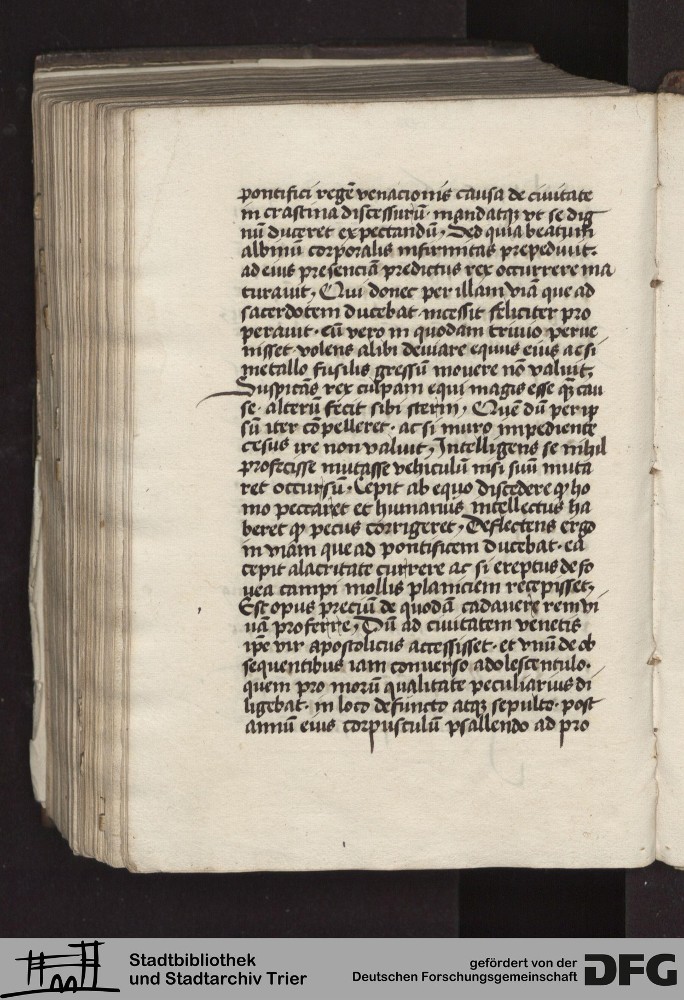 pontifici regē venacionis causa de ciuitate
in crastina discessurū· mandatqꝫ vt se dig
nū duceret expectandū· Sed quia beatum
albinū corporalis infirmitas prepediuit·
ad eius presenciā predictus rex occurrere ma
turauit, Qui donec per illam viā que ad
sacerdotem ducebat incessit feliciter pro
perauit· cū vero in quodam triuio perue
nisset volens alibi deuiare equus eius ac si
metallo fusilis gressū mouere nō valuit,
Suspicās rex culpam equi magis esse qꝫ cau
se· alterū fecit sibi sterni, Quē dū per ip
sū iter cōpelleret· ac si muro impediente
cesus ire non valuit, Intelligens se nihil
profecisse mutasse vehiculū nisi suū muta
ret occursū· Cepit ab equo discedere ꝙ ho
mo peccaret et humanus intellectus ha
beret ꝙ pecus corrigeret, Deflectens ergo
in viam que ad pontificem ducebat· ea
cepit alacritate currere ac si ereptus de fo
uea campi mollis planiciem recepisset,
Est opus preciū de quodā cadauere rem vi
uā proferre, Dū ad ciuitatem venetis
ip̄e vir apostolicus accessisset· et vnū de ob
sequentibus iam conuerso adolescentulo·
quem pro morū qualitate peculiarius di
ligebat· in loco defuncto atqꝫ sepulto· post
annū eius corpusculū psallendo ad pro
Stadtbibliothek
und Stadtarchiv Trier
gefördert von der
Deutschen Forschungsgemeinschaft
DFG